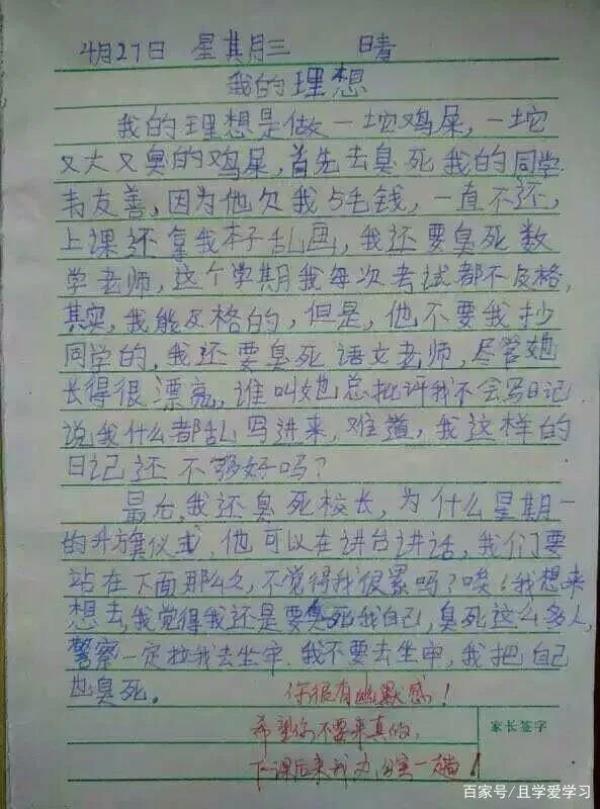 4月27日 星其月三 晴
我的理想
我的理想是做一坨鸡屎,一坨
又大又臭的鸡屎,首先去臭死我的同学
韦友善,因为他欠我5毛钱,一直不还,
上课还拿我本子乱画,我还要臭死数
学老师,这个学期我每次考试都不及格,
其实,我能及格的,但是,他不要我抄
同学的,我还要臭死语文老师,尽管她
长得很漂亮,谁叫她总批评我不会写日记
说我什么都乱写进来,难道,我这样的
日记还不够好吗?
最后,我还臭死校长,为什么星期一
的升旗仪式,他可以在讲台讲话,我们要
站在下面那么久,不觉得我很累吗?唉!我想来
想去,我觉得我还是要臭死我自己,臭死这么多人,
警察一定拉我去坐牢.我不要去坐牢,我把自己
也臭死。
你很有幽默感!
希望你不要来真的,
下课后来我办公室一趟!
家长签字
百家号/且学爱学习